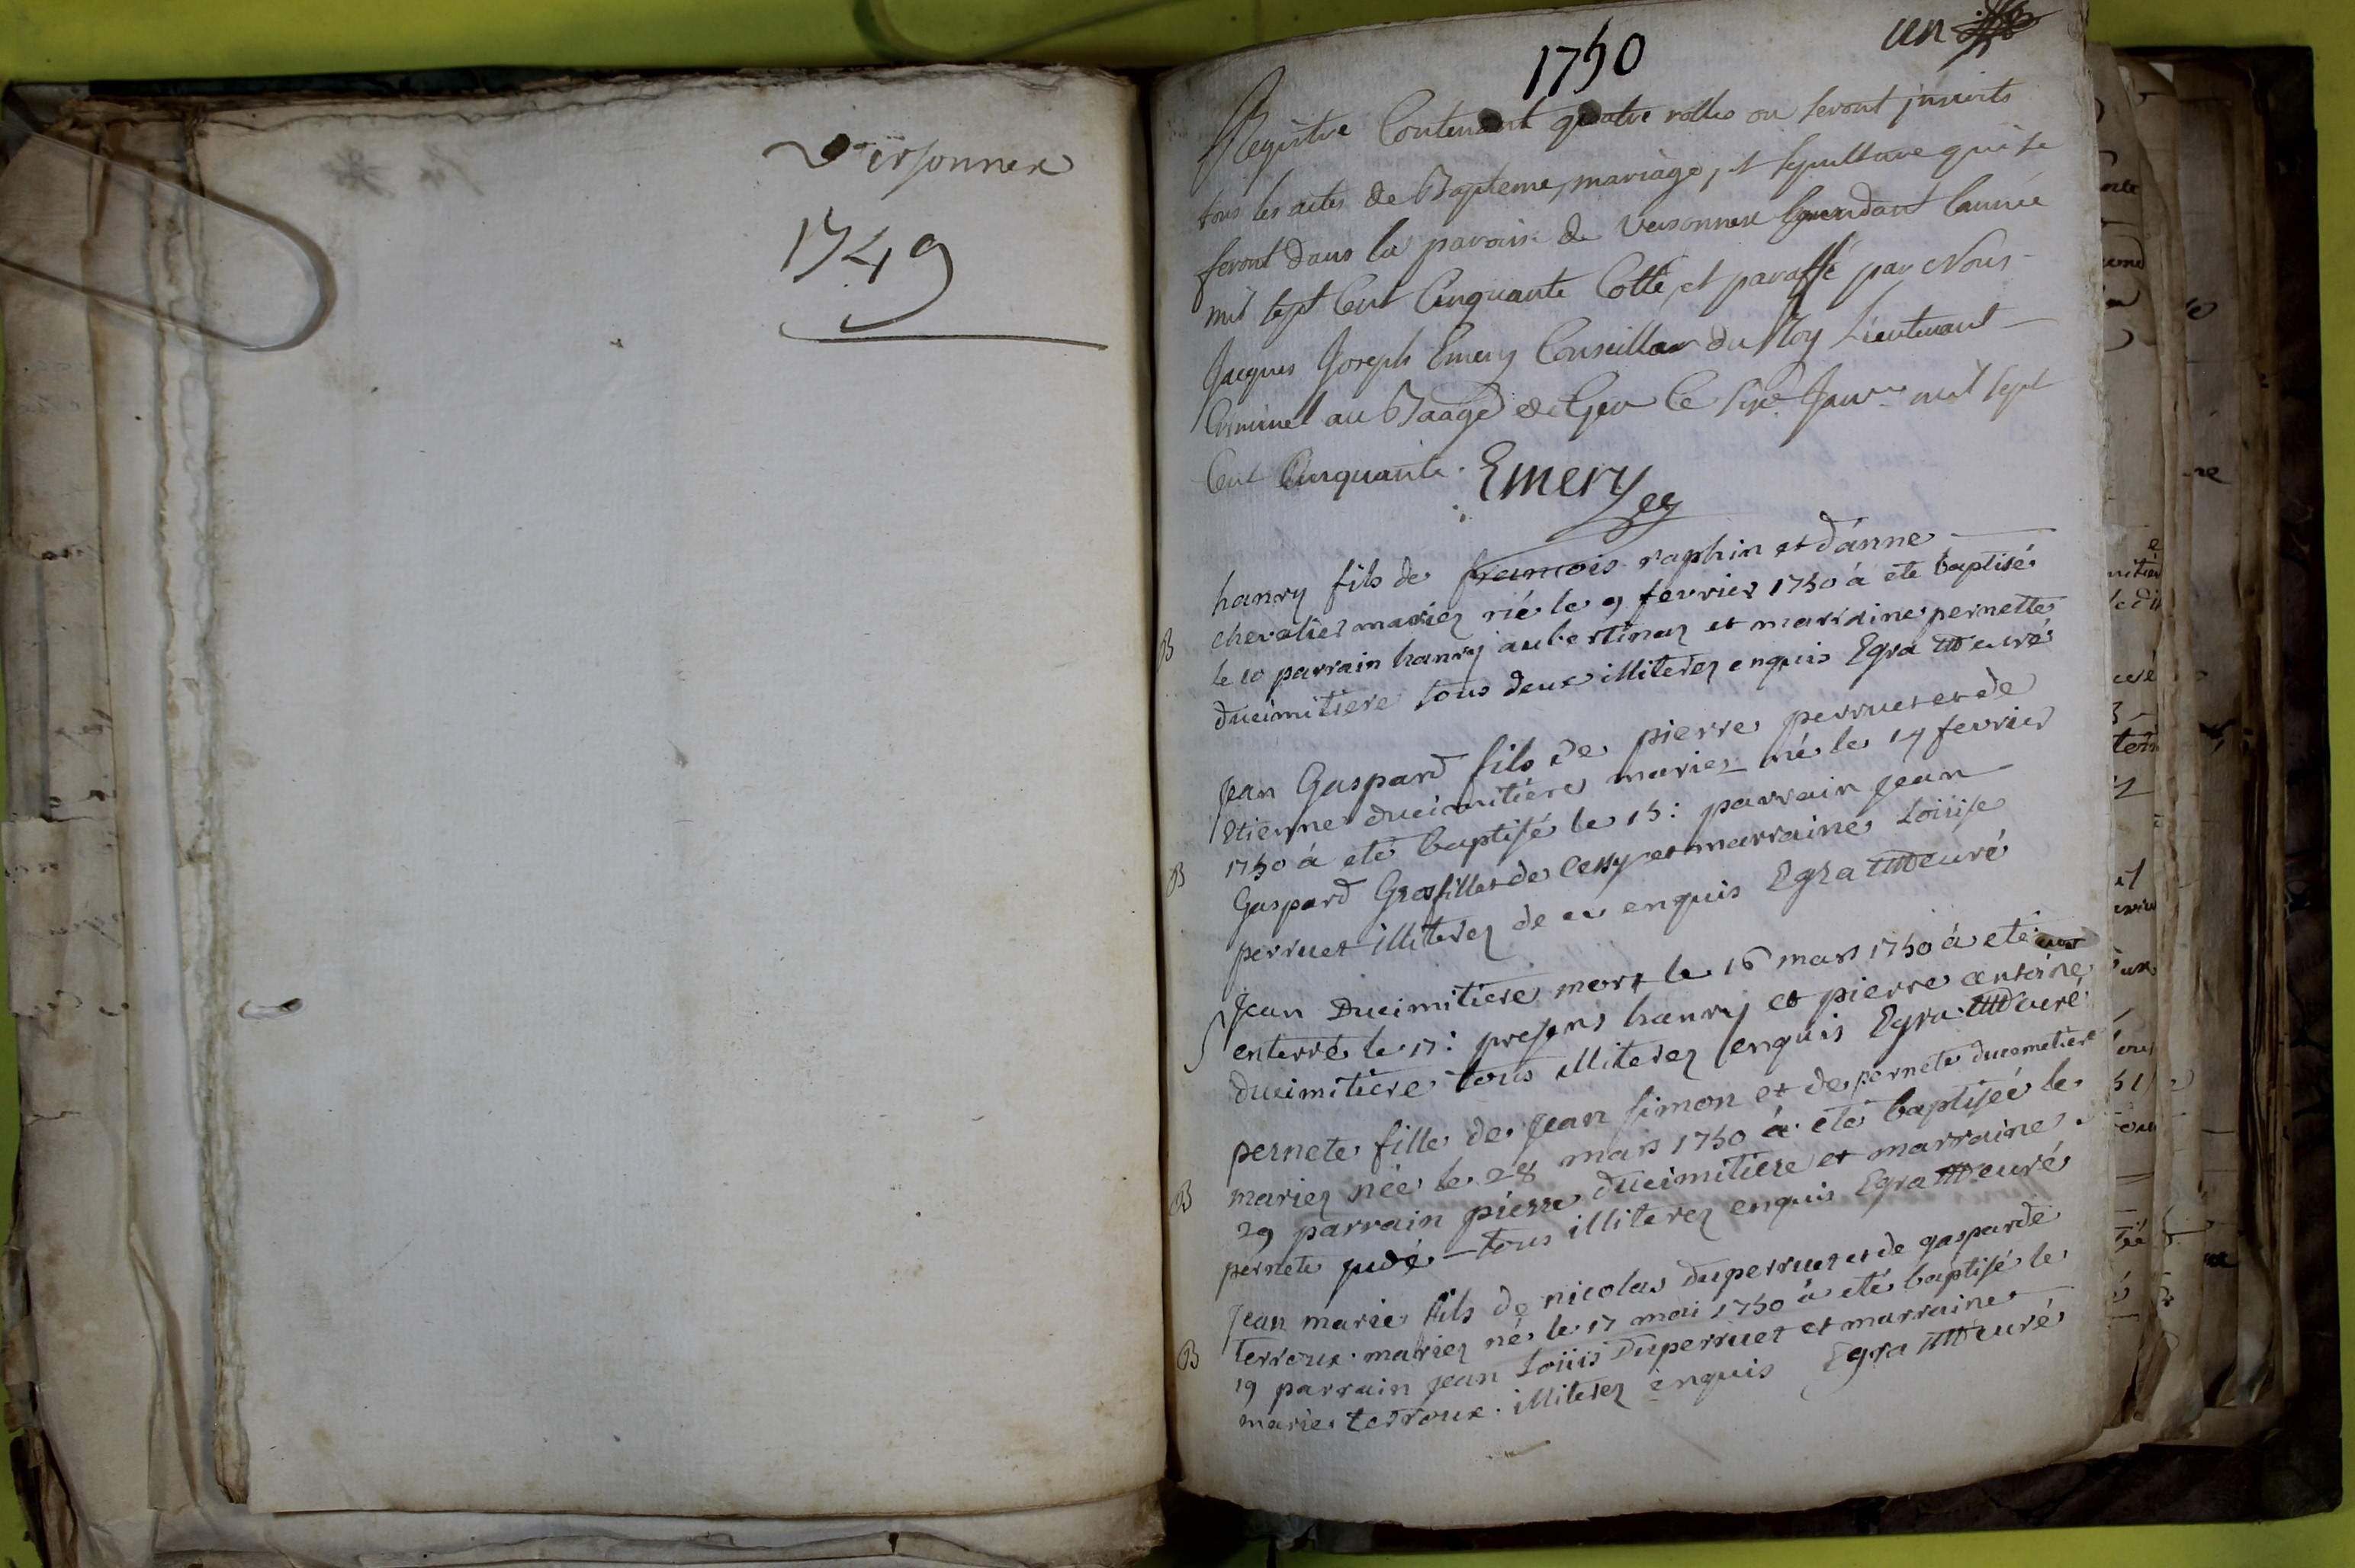 Versonnex
1749
1750
un
Registre Contenant quatre rolles ou seront jnscrits
tous les actes de Bapteme, mariage, et sepulture qui se
feront dans la paroisse de Versonnex pendant lannée
mil sept Cent Cinquante Cotté et paraffé par Nous
Jacques Joseph Emery Conseiller du Roy Lieutenant
Criminel au Baage de Gex Ce six Janvr mil sept
Cent Cinquante. Emery
hanry fils de francois raphin et d'anne
B chevalier mariez né le 9 fevrier 1750 à eté baptisé
le 10 parrain hanry aubertinaz et marraine pernette
ducimitiere tous deux illiterez enquis Egra curé
Jean Gaspard fils de pierre perruet et de
Etienne ducimitiére mariez né le 14 fevrier
B 1750 à eté baptisé le 15: parrain jean
Gaspard Grosfillet de Cessy et marraine Loüise
perruet illiterez de ce enquis Egra curé
Jean Ducimitiere mort le 16 mars 1750 à eté
S enterré le 17: presens hanry et pierre antoine
ducimitiere tous illiterez enquis Egra curé
pernete fille de Jean Simon et de pernete ducimetiere
B mariez née le 28 mars 1750 à eté baptisée le
29 parrain pierre ducimitiere et marraine
pernete judé tous illiterez enquis Egra curé
Jean marie fils de nicolas duperruet et de gasparde
B terroux mariez né le 17 mai 1750 à eté baptisé le
19 parrain jean Loüis Duperruet et marraine
marie terroux illiterez enquis Egra curé